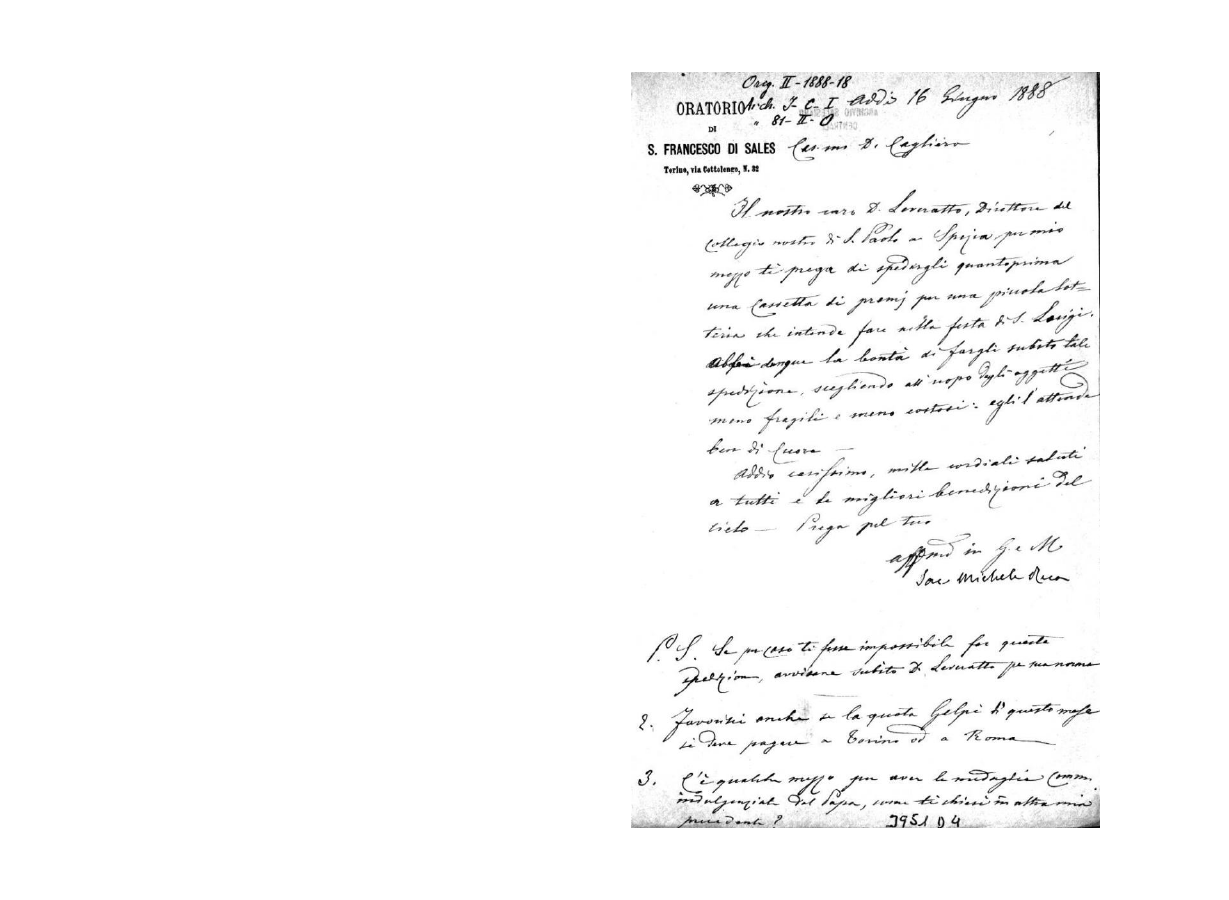 Orig. II-1888-18
ORATORIO Arch. I-C-I Addì 16 Giugno 1888
DI " 81-II-O
S. FRANCESCO DI SALES Car.mo D. Cagliero
Torino, via Cottolengo, N. 32
Il nostro caro D. Leveratto, Direttore del
Collegio nostro di S. Paolo a Spezia, per mio
mezzo ti prega di spedirgli quantoprima
una Cassetta di premj per una piccola lot=
teria che intende fare nella festa di S. Luigi.
Abbi dunque la bontà di fargli subito tale
spedizione, scegliendo all'uopo degli oggetti
meno fragili e meno costosi: egli l'attende
ben di Cuore —
Addio carissimo, mille cordiali saluti
a tutti e le migliori benedizioni del
cielo — Prega pel tuo
aff.mo in G. e M.
Sac. Michele Rua
P. S. Se per caso ti fosse impossibile far questa
spedizione, avvisane subito D. Leveratto per sua norma
2. Favorisci anche se la quota Gelpi di questo mese
si deve pagare a Torino od a Roma —
3. C'è qualche mezzo per aver le medaglie Comm.
indulgenziate dal Papa, come ti chiesi in altra mia
precedente?
3951 D 4